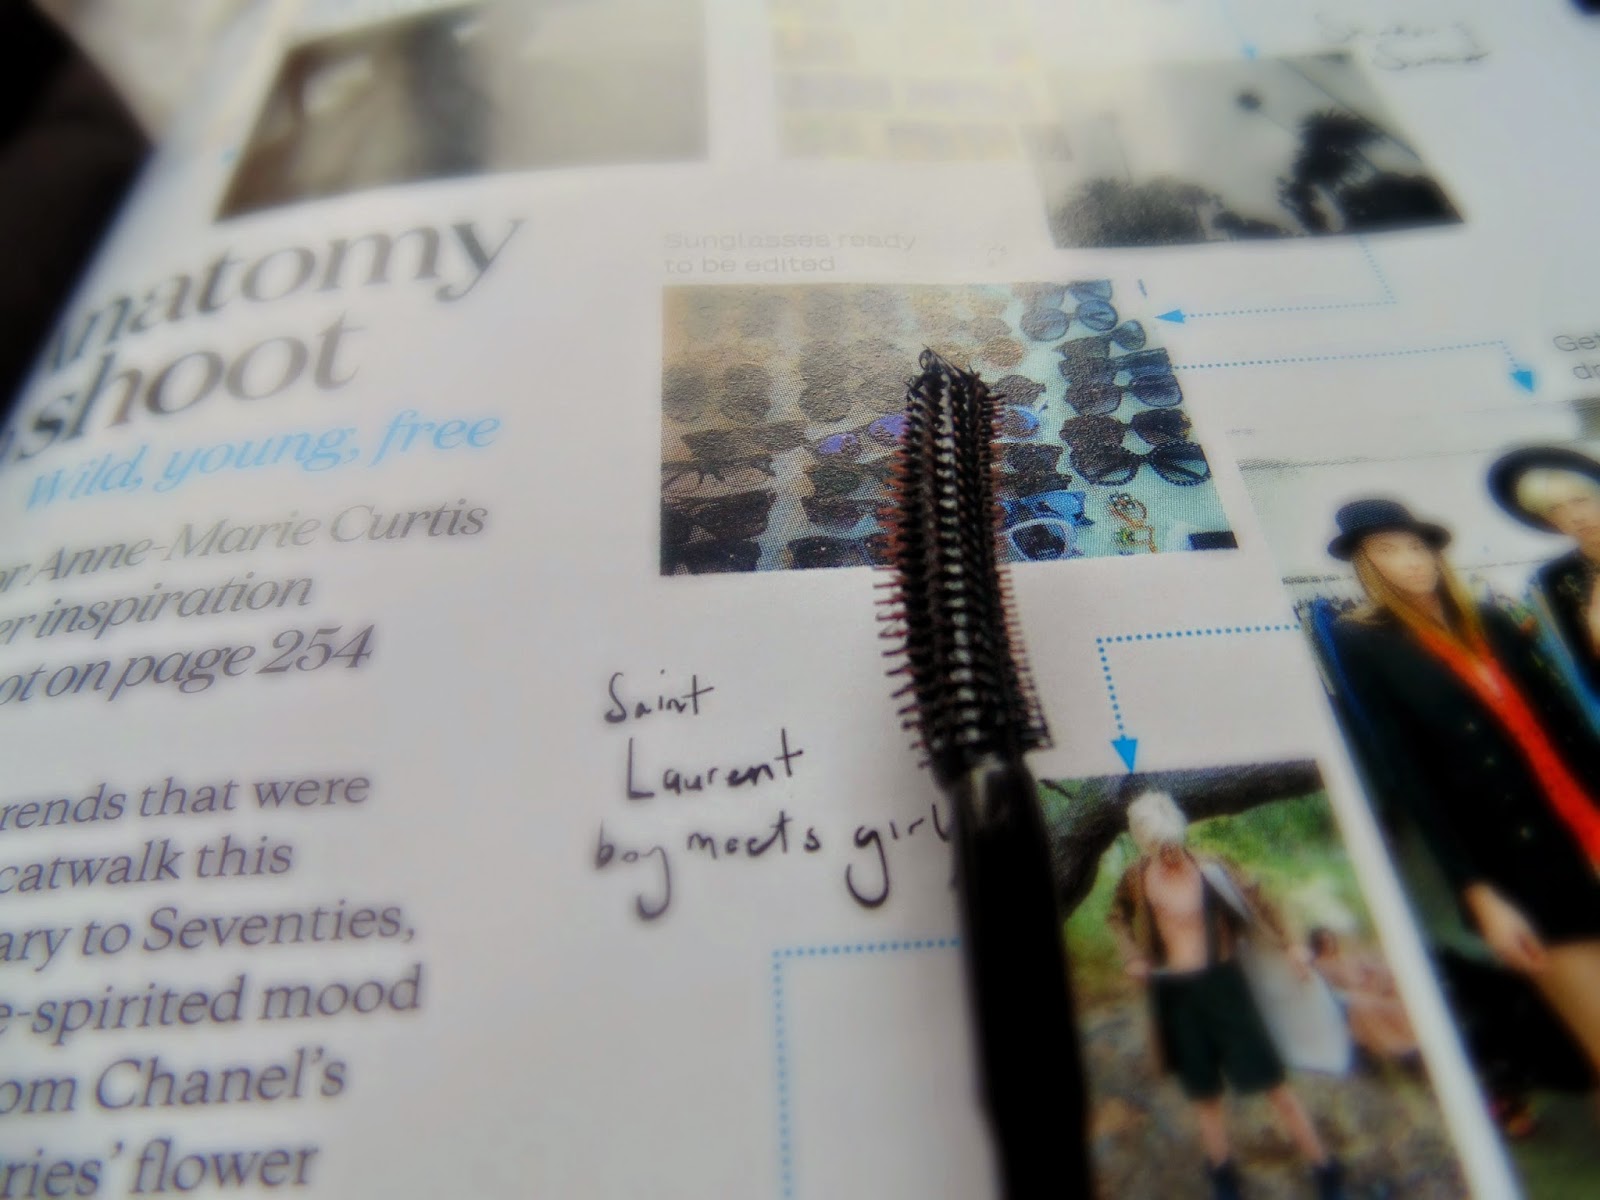 Anatomy
shoot
Wild, young, free
Anne-Marie Curtis
inspiration
on page 254
trends that were
catwalk this
to Seventies,
-spirited mood
Chanel's
flower
Sunglasses ready
to be edited
Saint
Laurent
boy meets girl